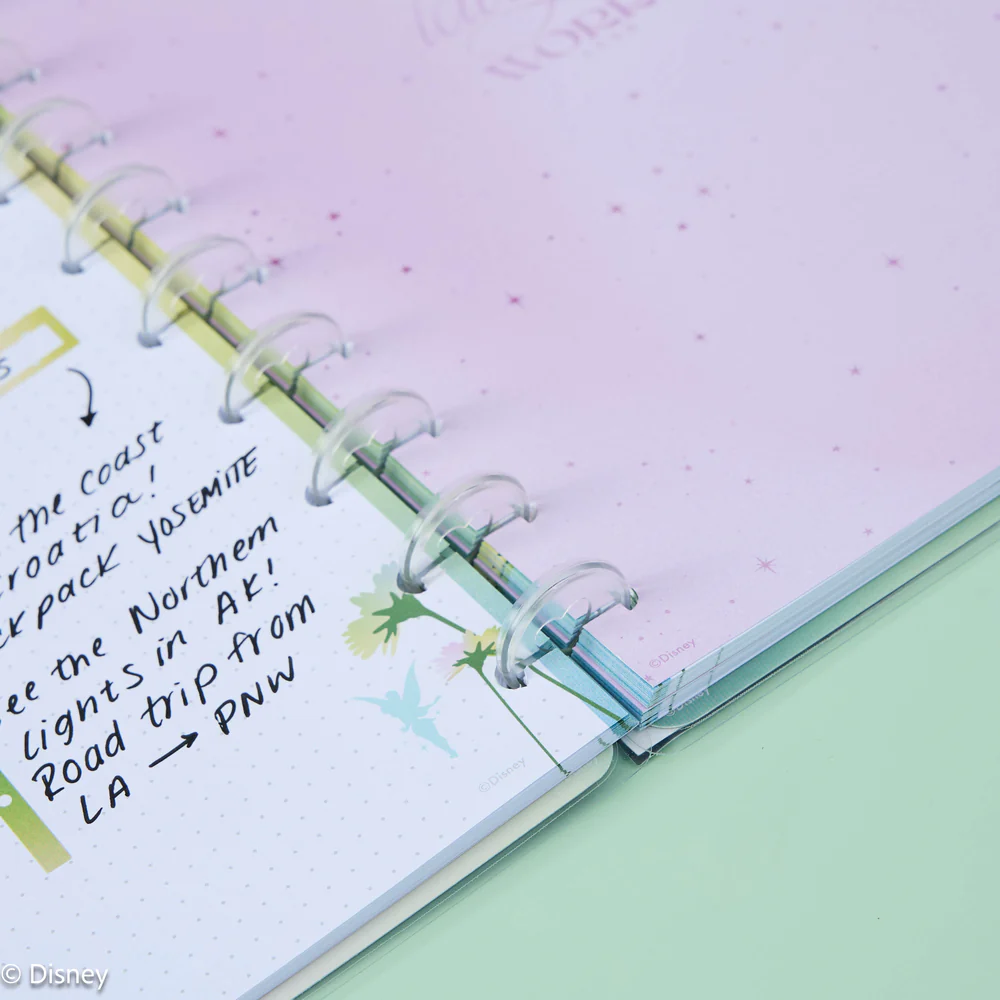 WORLD
s
the coast
roatia!
ckpack YOSEMITE
ee the Northern
lights in AK!
Road trip from
LA → PNW
©Disney
©Disney
© Disney